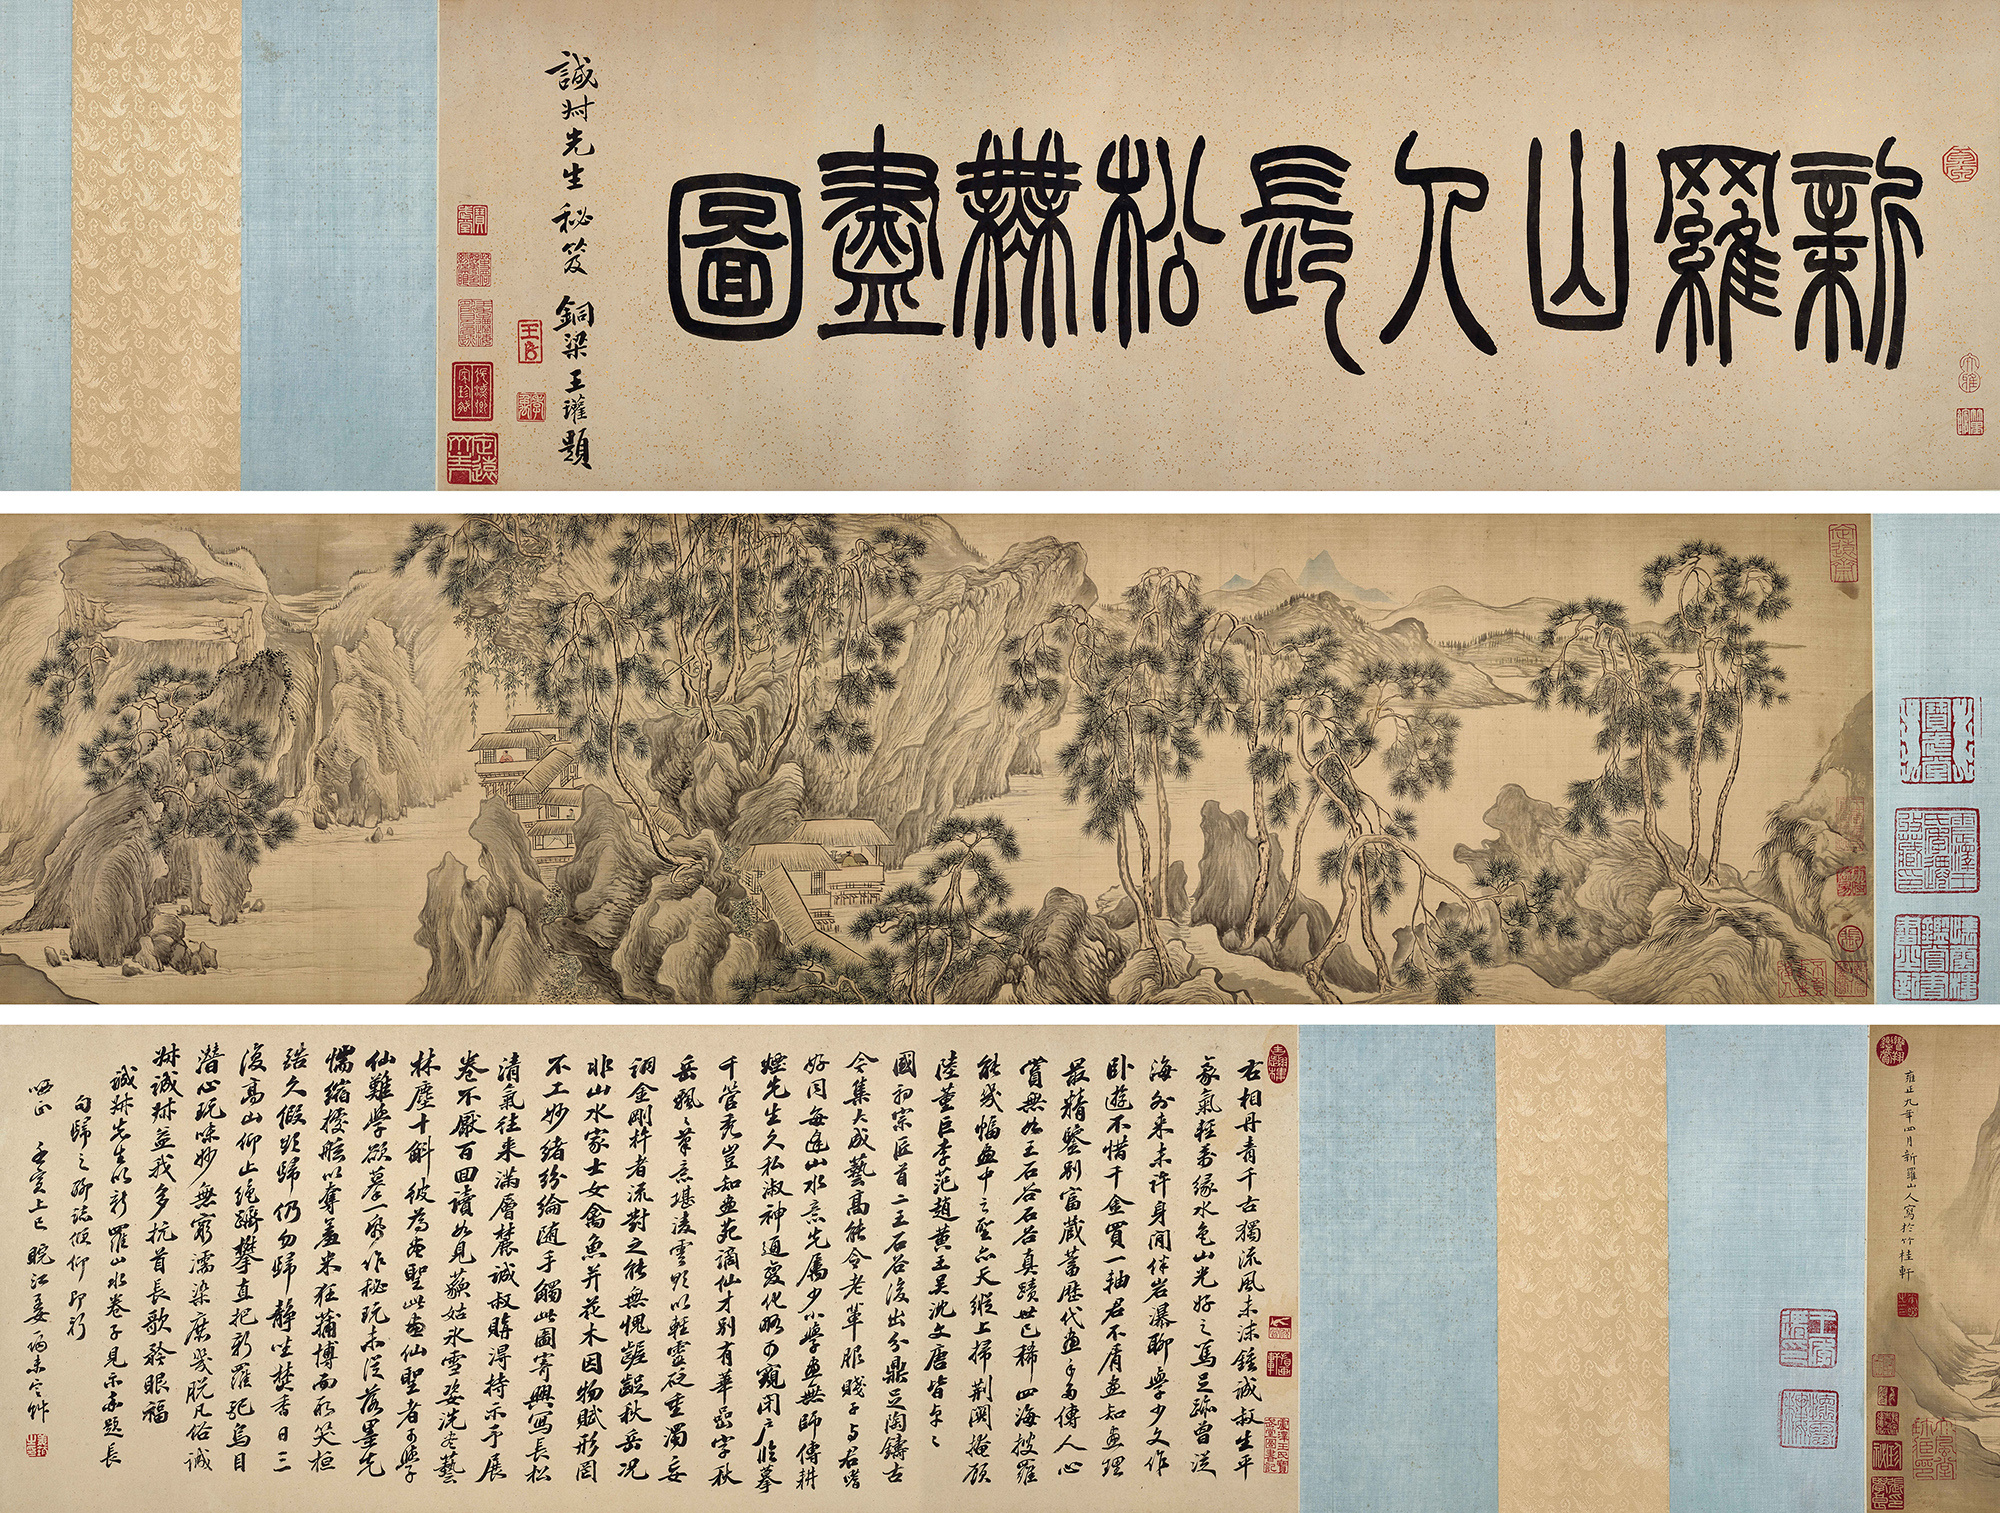 新羅山人長松橆盡圖
誠尗先生秘笈 銅梁王瓘題
雍正九年四月新羅山人寫於竹桂軒
右相丹青千古獨流風未沫鍾誠叔生平
豪氣輕萬緣水色山光好之篤足跡曾從
海外來未許身閒伴岩瀑聊學少文作
臥遊不惜千金買一軸君不屑畫知畫理
最精鑒別富藏蓄歷代畫手多傳人心
賞無如王石谷石谷真蹟世已稀四海搜羅
能幾幅畫中之聖亦天縱上掃荊關掩顧
陸董巨李范趙黃王吳沈文唐皆卓々
國初宗匠首二王石谷後出分鼎足陶鑄古
今集大成藝高能令老輩服賤子与君嗜
好同每逢山水意先屬少小學畫無師傳耕
煙先生久私淑神通變化略可窺閉户臨摹
千管禿豈知畫苑謫仙才別有華喦字秋
岳飄々筆意堪凌雲頗以輕靈砭重濁妄
詡金剛杵者流對之能無愧齷齪秋岳況
非山水家士女禽魚并花木因物賦形罔
不工妙緒紛綸随手觸此圖寄興寫長松
清氣往来滿層麓誠叔購得持示予展
卷不厭百回讀如見藐姑冰雪姿洗盡藝
林塵十斛彼為畫聖此畫仙聖者可學
仙難學欲摹一紙作秘玩未從落墨先
惴縮以奪羞米狂博而笑桓
久假頗歸仍勿歸靜坐焚香日三
復高山仰止絕躋攀直把新羅
潛心玩味妙無窮濡染庶幾脫凡俗誠
尗誠尗益我多抗首長歌矜眼福
誠尗先生以新羅山水卷子見示爲題長
句歸之即
哂正 壬寅上巳 皖江姜筠未定艸